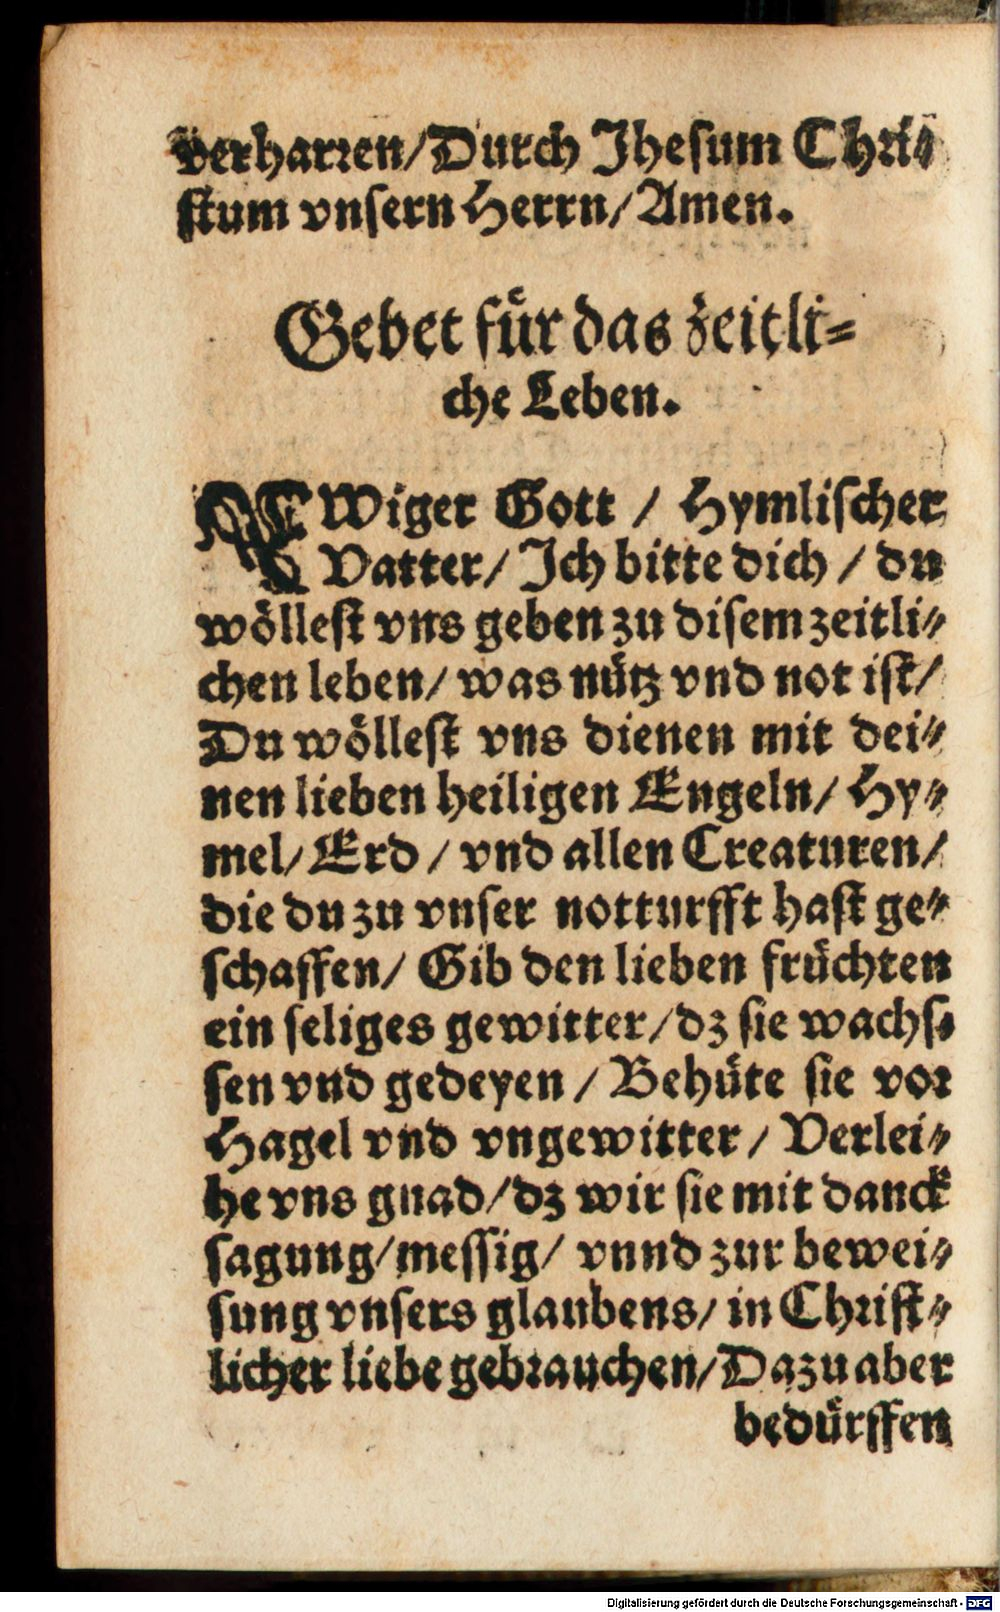 verharren/Durch Jhesum Chri⸗
stum vnsern Herrn/Amen.
Gebet für das zeitli⸗
che Leben.
EWiger Gott / Hymlischer
Vatter/ Ich bitte dich / du
wöllest vns geben zu disem zeitli⸗
chen leben/ was nütz vnd not ist/
Du wöllest vns dienen mit dei⸗
nen lieben heiligen Engeln/ Hy⸗
mel/ Erd / vnd allen Creaturen/
die du zu vnser notturfft hast ge⸗
schaffen/ Gib den lieben früchten
ein seliges gewitter/dz sie wachs⸗
sen vnd gedeyen / Behüte sie vor
Hagel vnd vngewitter/ Verlei⸗
he vns gnad/dz wir sie mit danck
sagung/messig/ vnnd zur bewei⸗
sung vnsers glaubens/ in Christ⸗
licher liebe gebrauchen/Dazu aber
bedürffen
Digitalisierung gefördert durch die Deutsche Forschungsgemeinschaft - DFG